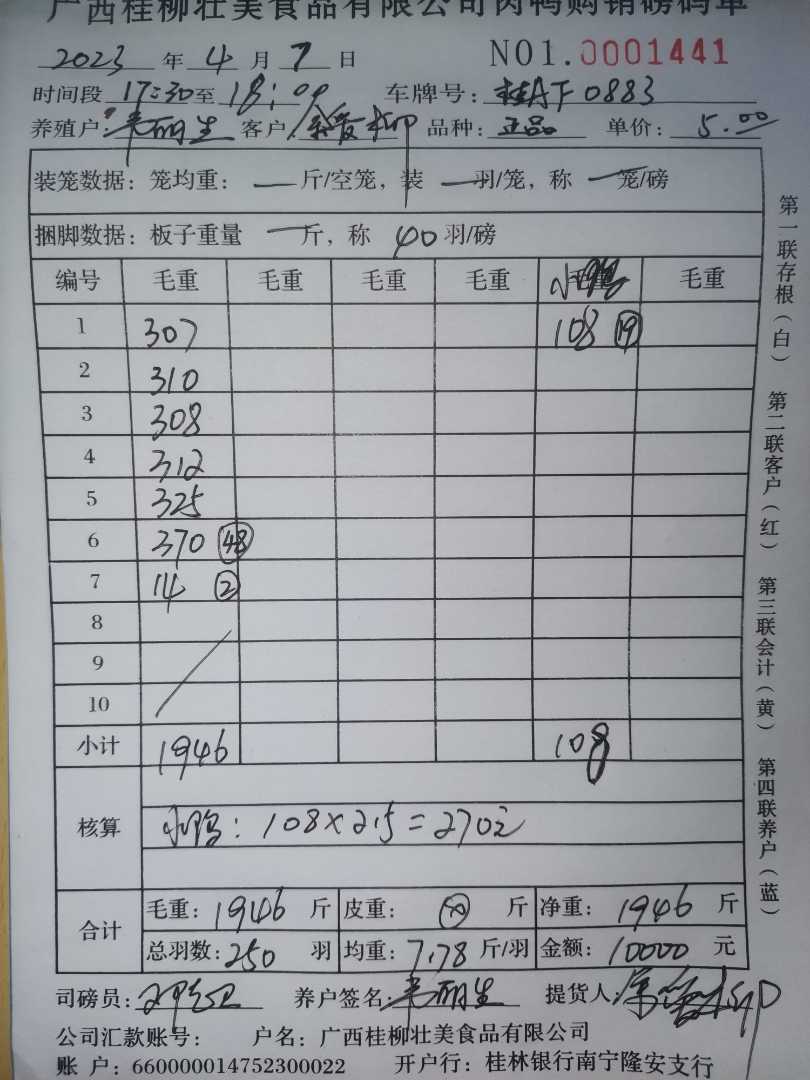 广西桂柳壮美食品有限公司肉鸭购销磅码单
2023 年 4 月 7 日 NO1.0001441
时间段 17:30 至 18:00 车牌号: 桂AF0883
养殖户: 客户 品种: 正品 单价: 5.00
装笼数据: 笼均重: — 斤/空笼, 装 — 羽/笼, 称 — 笼/磅
捆脚数据: 板子重量 — 斤, 称 40 羽/磅
编号 毛重 毛重 毛重 毛重 小鸭 毛重
1 307 108 19
2 310
3 308
4 312
5 325
6 370 48
7 14 2
8
9
10
小计 1946 108
核算 小鸭: 108×2.5=270元
合计 毛重: 1946 斤 皮重: 斤 净重: 1946 斤
总羽数: 250 羽 均重: 7.78 斤/羽 金额: 10000 元
司磅员: 养户签名: 提货人:
公司汇款账号: 户名: 广西桂柳壮美食品有限公司
账 户: 660000014752300022 开户行: 桂林银行南宁隆安支行
第一联存根(白) 第二联客户(红) 第三联会计(黄) 第四联养户(蓝)